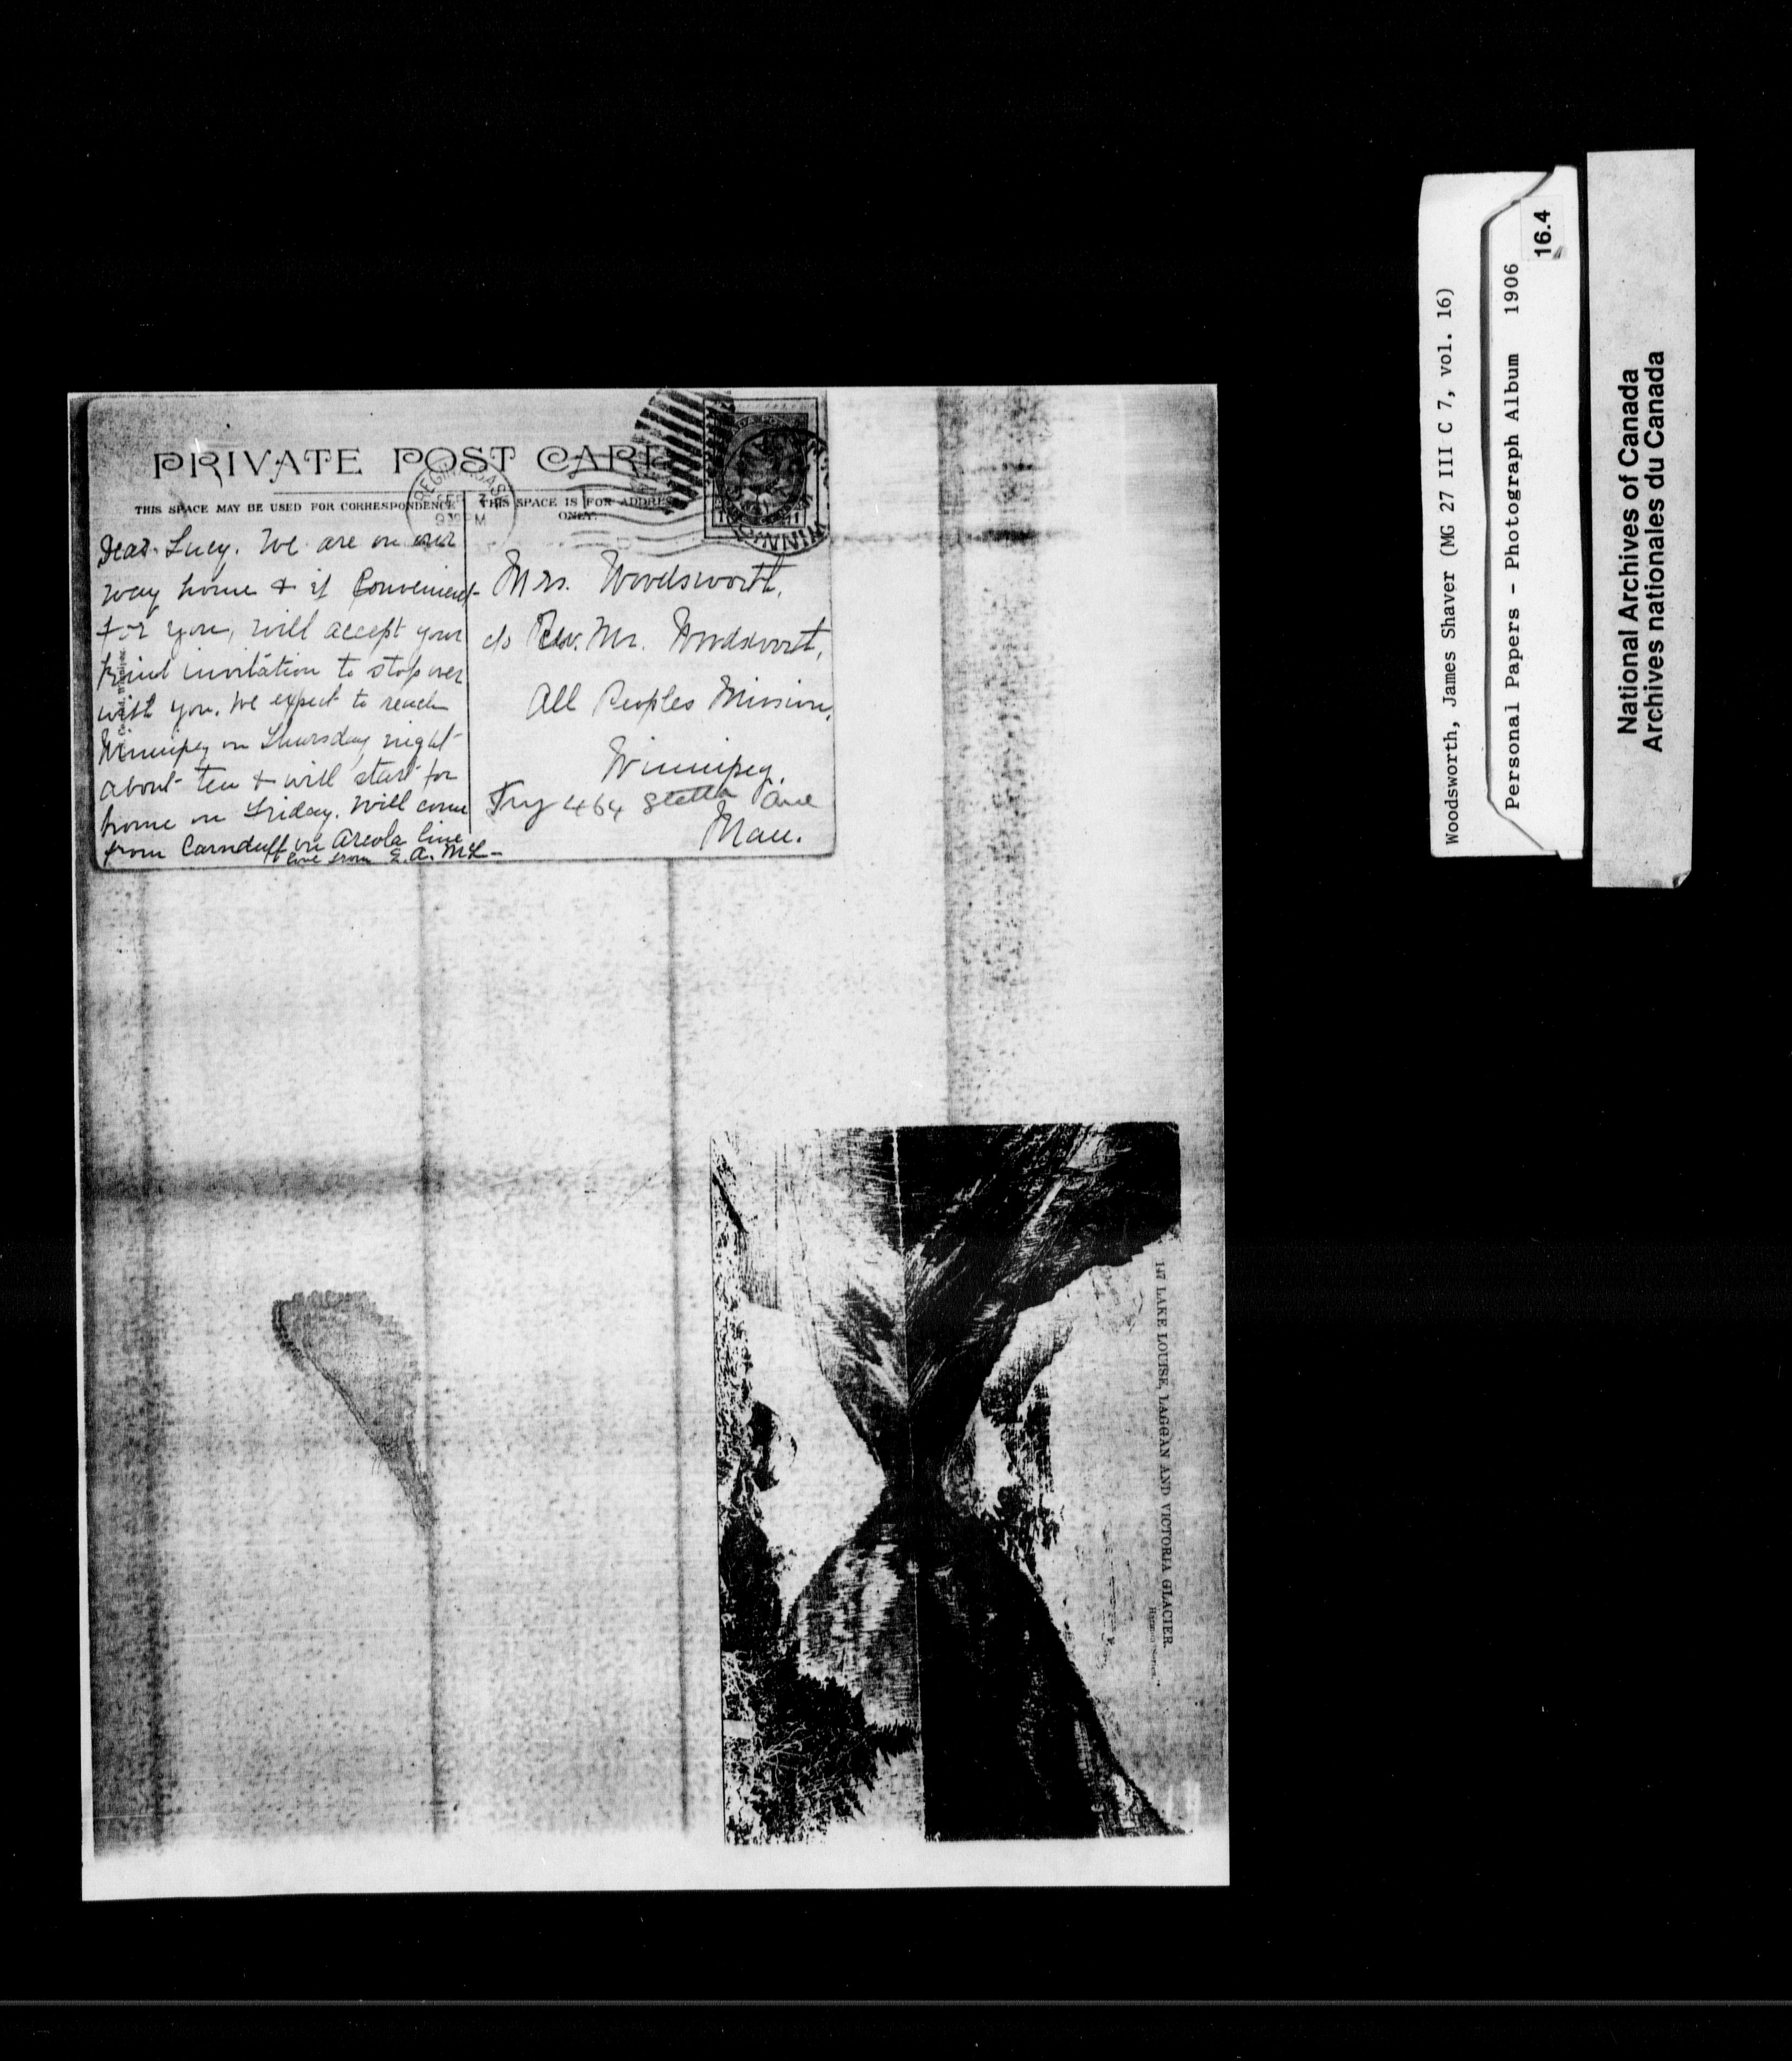 PRIVATE POST CARD
THIS SPACE MAY BE USED FOR CORRESPONDENCE
THIS SPACE IS FOR ADDRESS
ONLY.
REGINA SASK
SEP 7
PM
WINNIPEG
Dear Lucy. We are on our
way home & if convenient
for you, will accept your
kind invitation to stop over
with you. We expect to reach
Winnipeg on Thursday night
about ten & will start for
home on Friday. Will come
from Carnduff on Arcola line
love from E. A. McL-
Mrs. Woodsworth,
c/o Rev. Mr. Woodsworth,
All Peoples Mission,
Winnipeg.
Try 464 Stella Ave
Man.
147 LAKE LOUISE, LAGGAN AND VICTORIA GLACIER.
Woodsworth, James Shaver (MG 27 III C 7, vol. 16)
Personal Papers - Photograph Album 1906
16.4
National Archives of Canada
Archives nationales du Canada